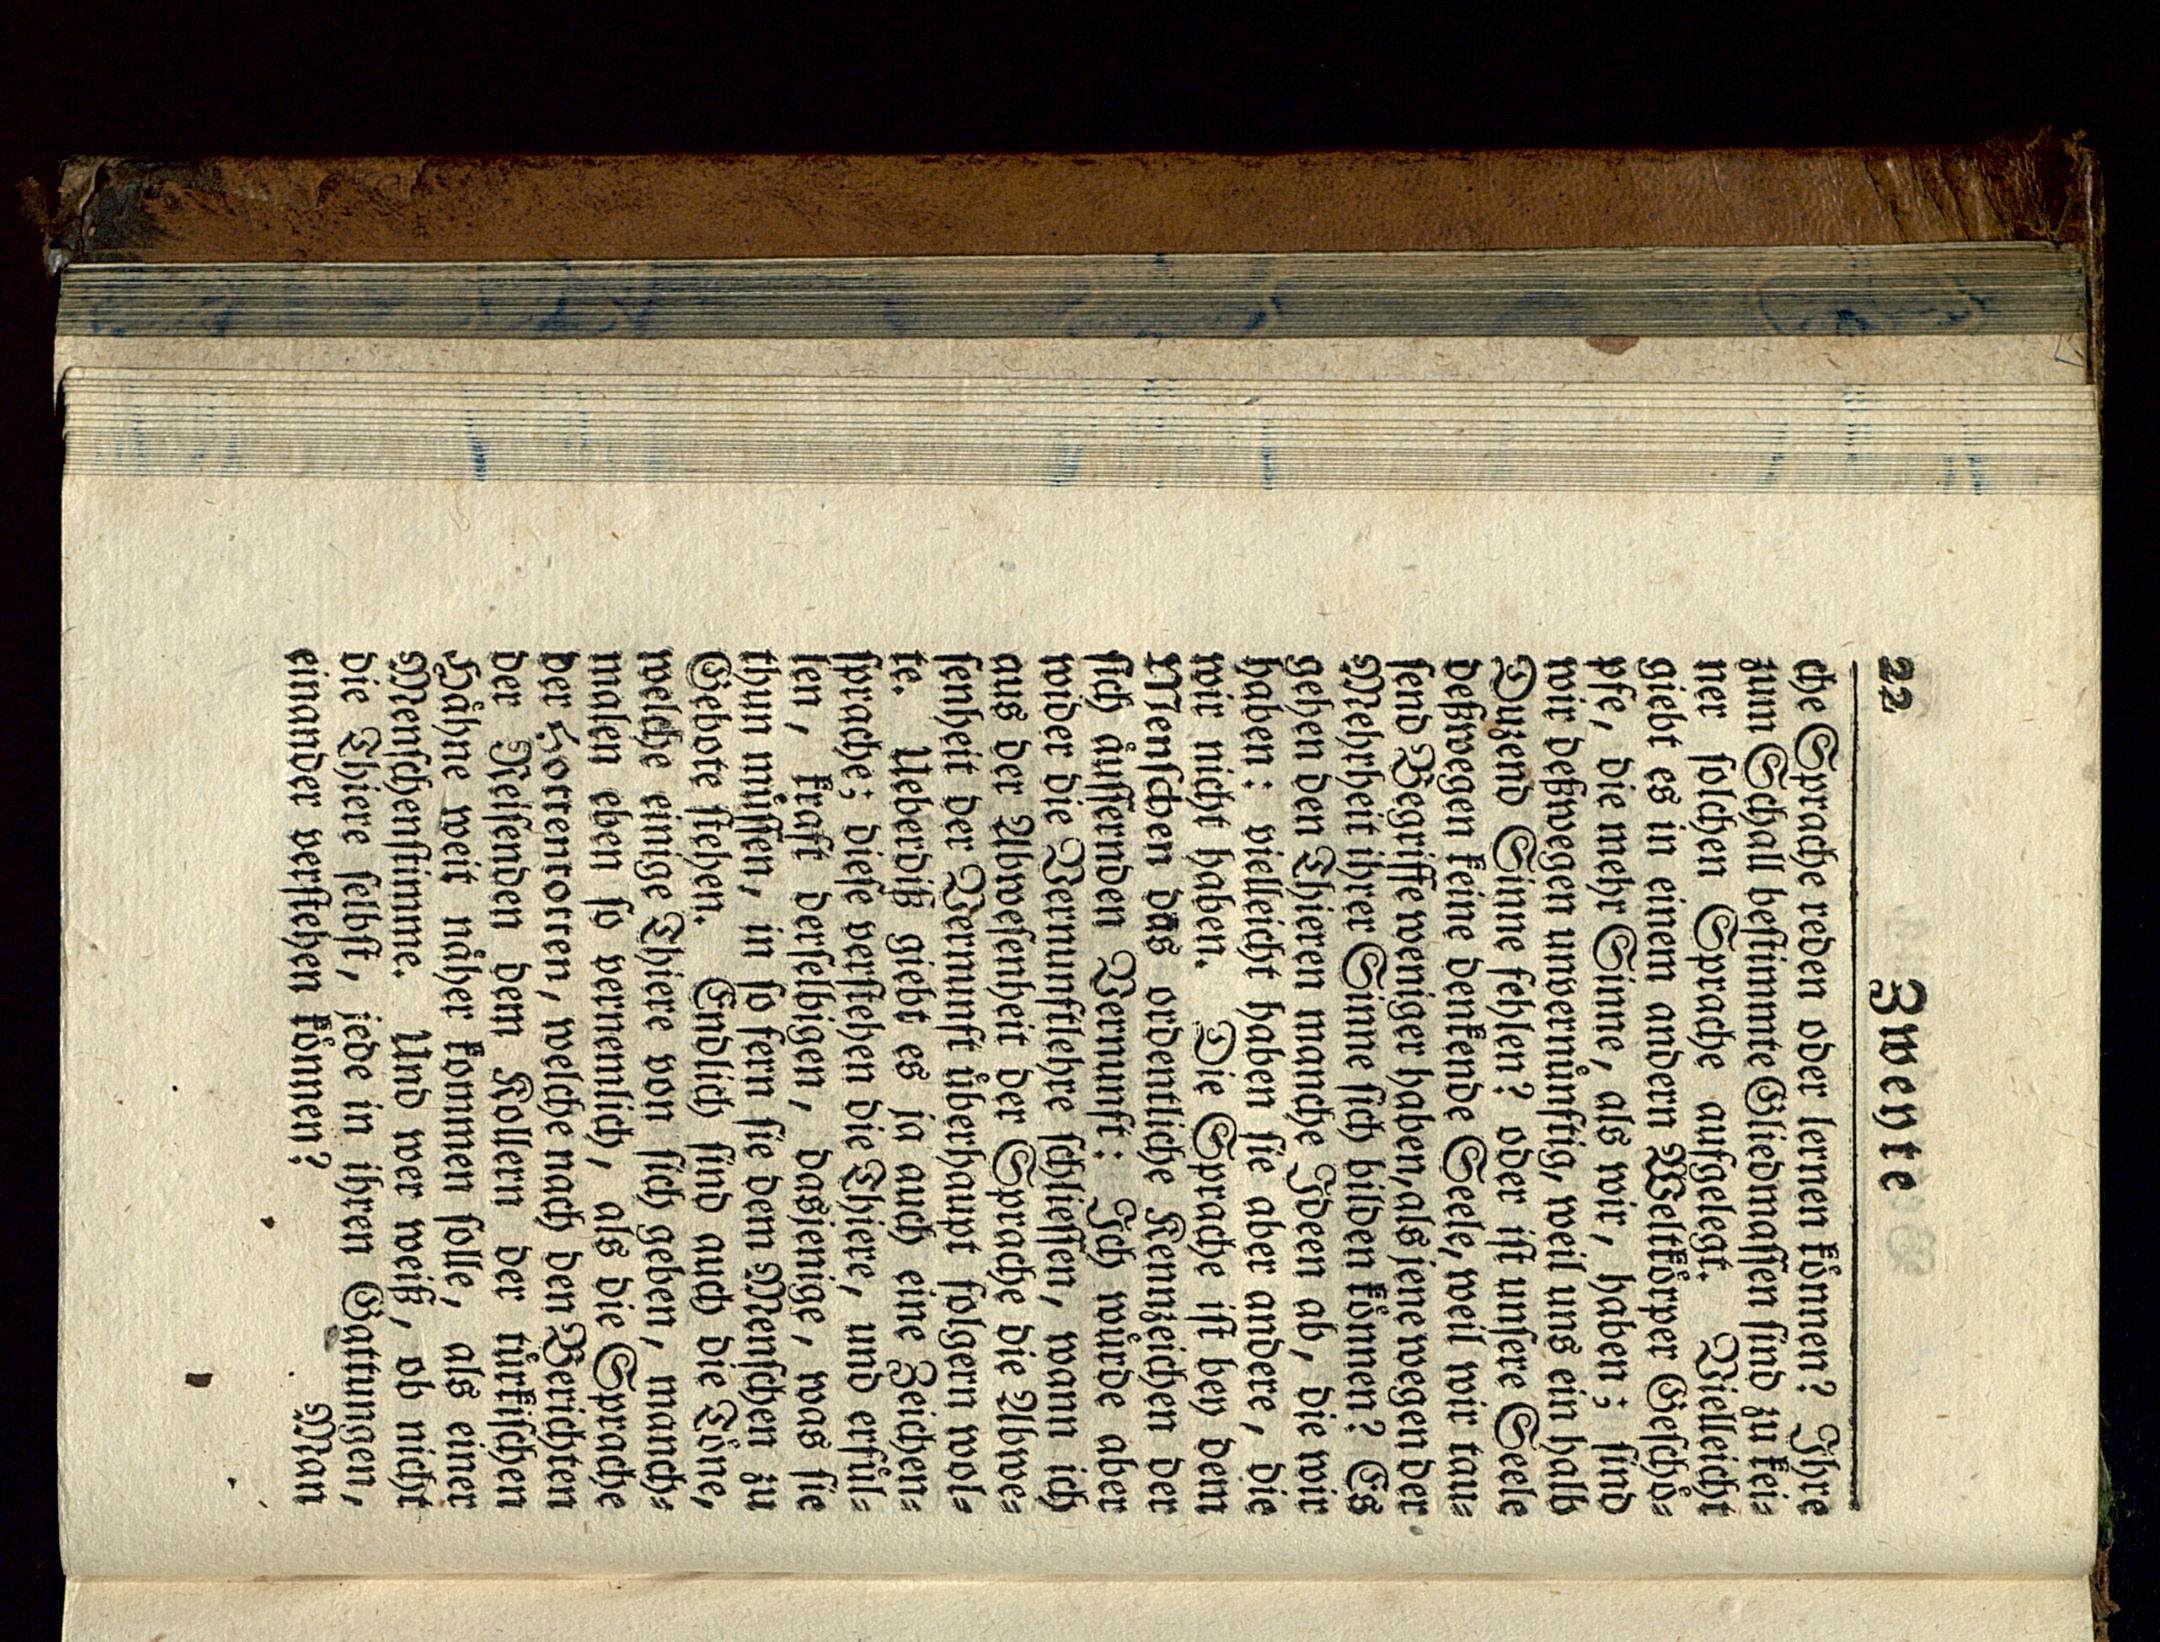 22 Zweyte
che Sprache reden oder lernen können? Ihre
zum Schall bestimmte Gliedmassen sind zu kei-
ner solchen Sprache aufgelegt. Vielleicht
giebt es in einem andern Weltkörper Geschö-
pfe, die mehr Sinne, als wir, haben; sind
wir deßwegen unvernünftig, weil uns ein halb
Duzend Sinne fehlen? oder ist unsere Seele
deßwegen keine denkende Seele, weil wir tau-
send Begriffe weniger haben, als jene wegen der
Mehrheit ihrer Sinne sich bilden können? Es
gehen den Thieren manche Ideen ab, die wir
haben: vielleicht haben sie aber andere, die
wir nicht haben. Die Sprache ist bey dem
Menschen das ordentliche Kennzeichen der
sich äussernden Vernunft: Ich würde aber
wider die Vernunftlehre schliessen, wann ich
aus der Abwesenheit der Sprache die Abwe-
senheit der Vernunft überhaupt folgern wol-
te. Ueberdiß giebt es ja auch eine Zeichen-
sprache; diese verstehen die Thiere, und erfül-
len, kraft derselbigen, dasjenige, was sie
thun müssen, in so fern sie dem Menschen zu
Gebote stehen. Endlich sind auch die Töne,
welche einige Thiere von sich geben, manch-
malen eben so vernemlich, als die Sprache
der Horrentorren, welche nach den Berichten
der Reisenden dem Kollern der türkischen
Hähne weit näher kommen solle, als einer
Menschenstimme. Und wer weiß, ob nicht
die Thiere selbst, jede in ihren Gattungen,
einander verstehen können?
Man